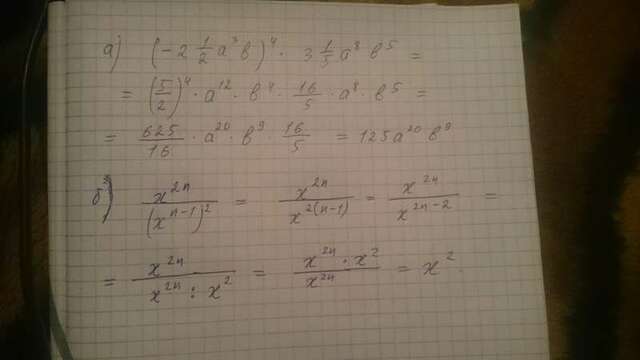 а) (-2 1/2 a³b)⁴ · 3 1/5 a⁸b⁵ =
= (5/2)⁴ · a¹² · b⁴ · 16/5 · a⁸ · b⁵ =
= 625/16 · a²⁰ · b⁹ · 16/5 = 125a²⁰b⁹
б) x²ⁿ/(xⁿ⁻¹)² = x²ⁿ/x²⁽ⁿ⁻¹⁾ = x²ⁿ/x²ⁿ⁻² =
= x²ⁿ/x²ⁿ : x² = x²ⁿ · x²/x²ⁿ = x².